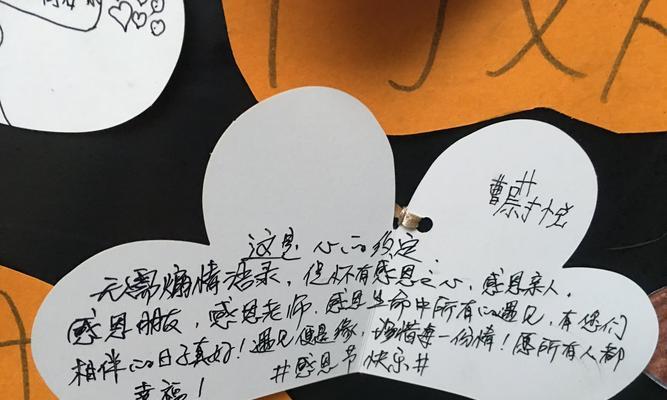 这是心的约定.
无需煽情语录，但怀有感恩之心，感恩亲人，
感恩朋友，感恩老师.感恩生命中所有的遇见，有您们
相伴的日子真好！遇见便是缘，珍惜每一份情！愿所有人都
幸福！ #感恩节快乐#